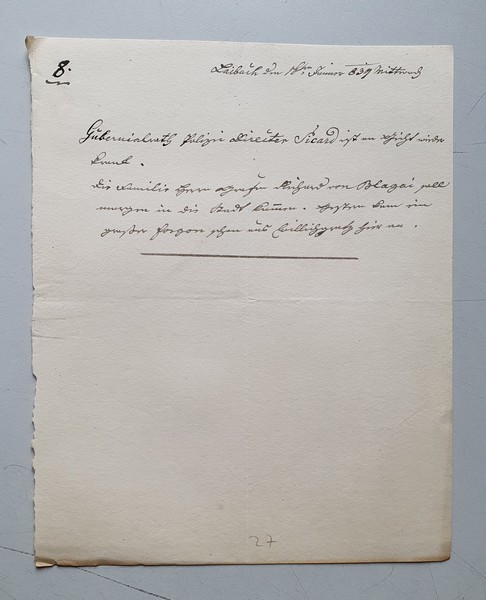 8.
Laibach den Jänner 839 Mittwoch
Gubernialrath Polizei Director Sicard ist an Gicht wieder
krank.
Die Familie Herrn Grafen Richard von Blagai soll
morgen in die Stadt kommen. Gestern kam ein
großer Fourgon schon aus Billichgratz hier an.
27